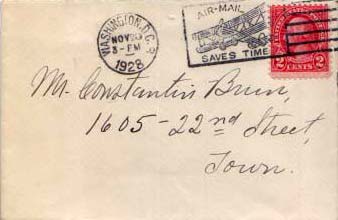 WASHINGTON, D.C.
NOV
3-PM
1928
AIR-MAIL
SAVES TIME
2 CENTS 2
Mr. Constantin Brun,
1605-22nd Street,
Town.